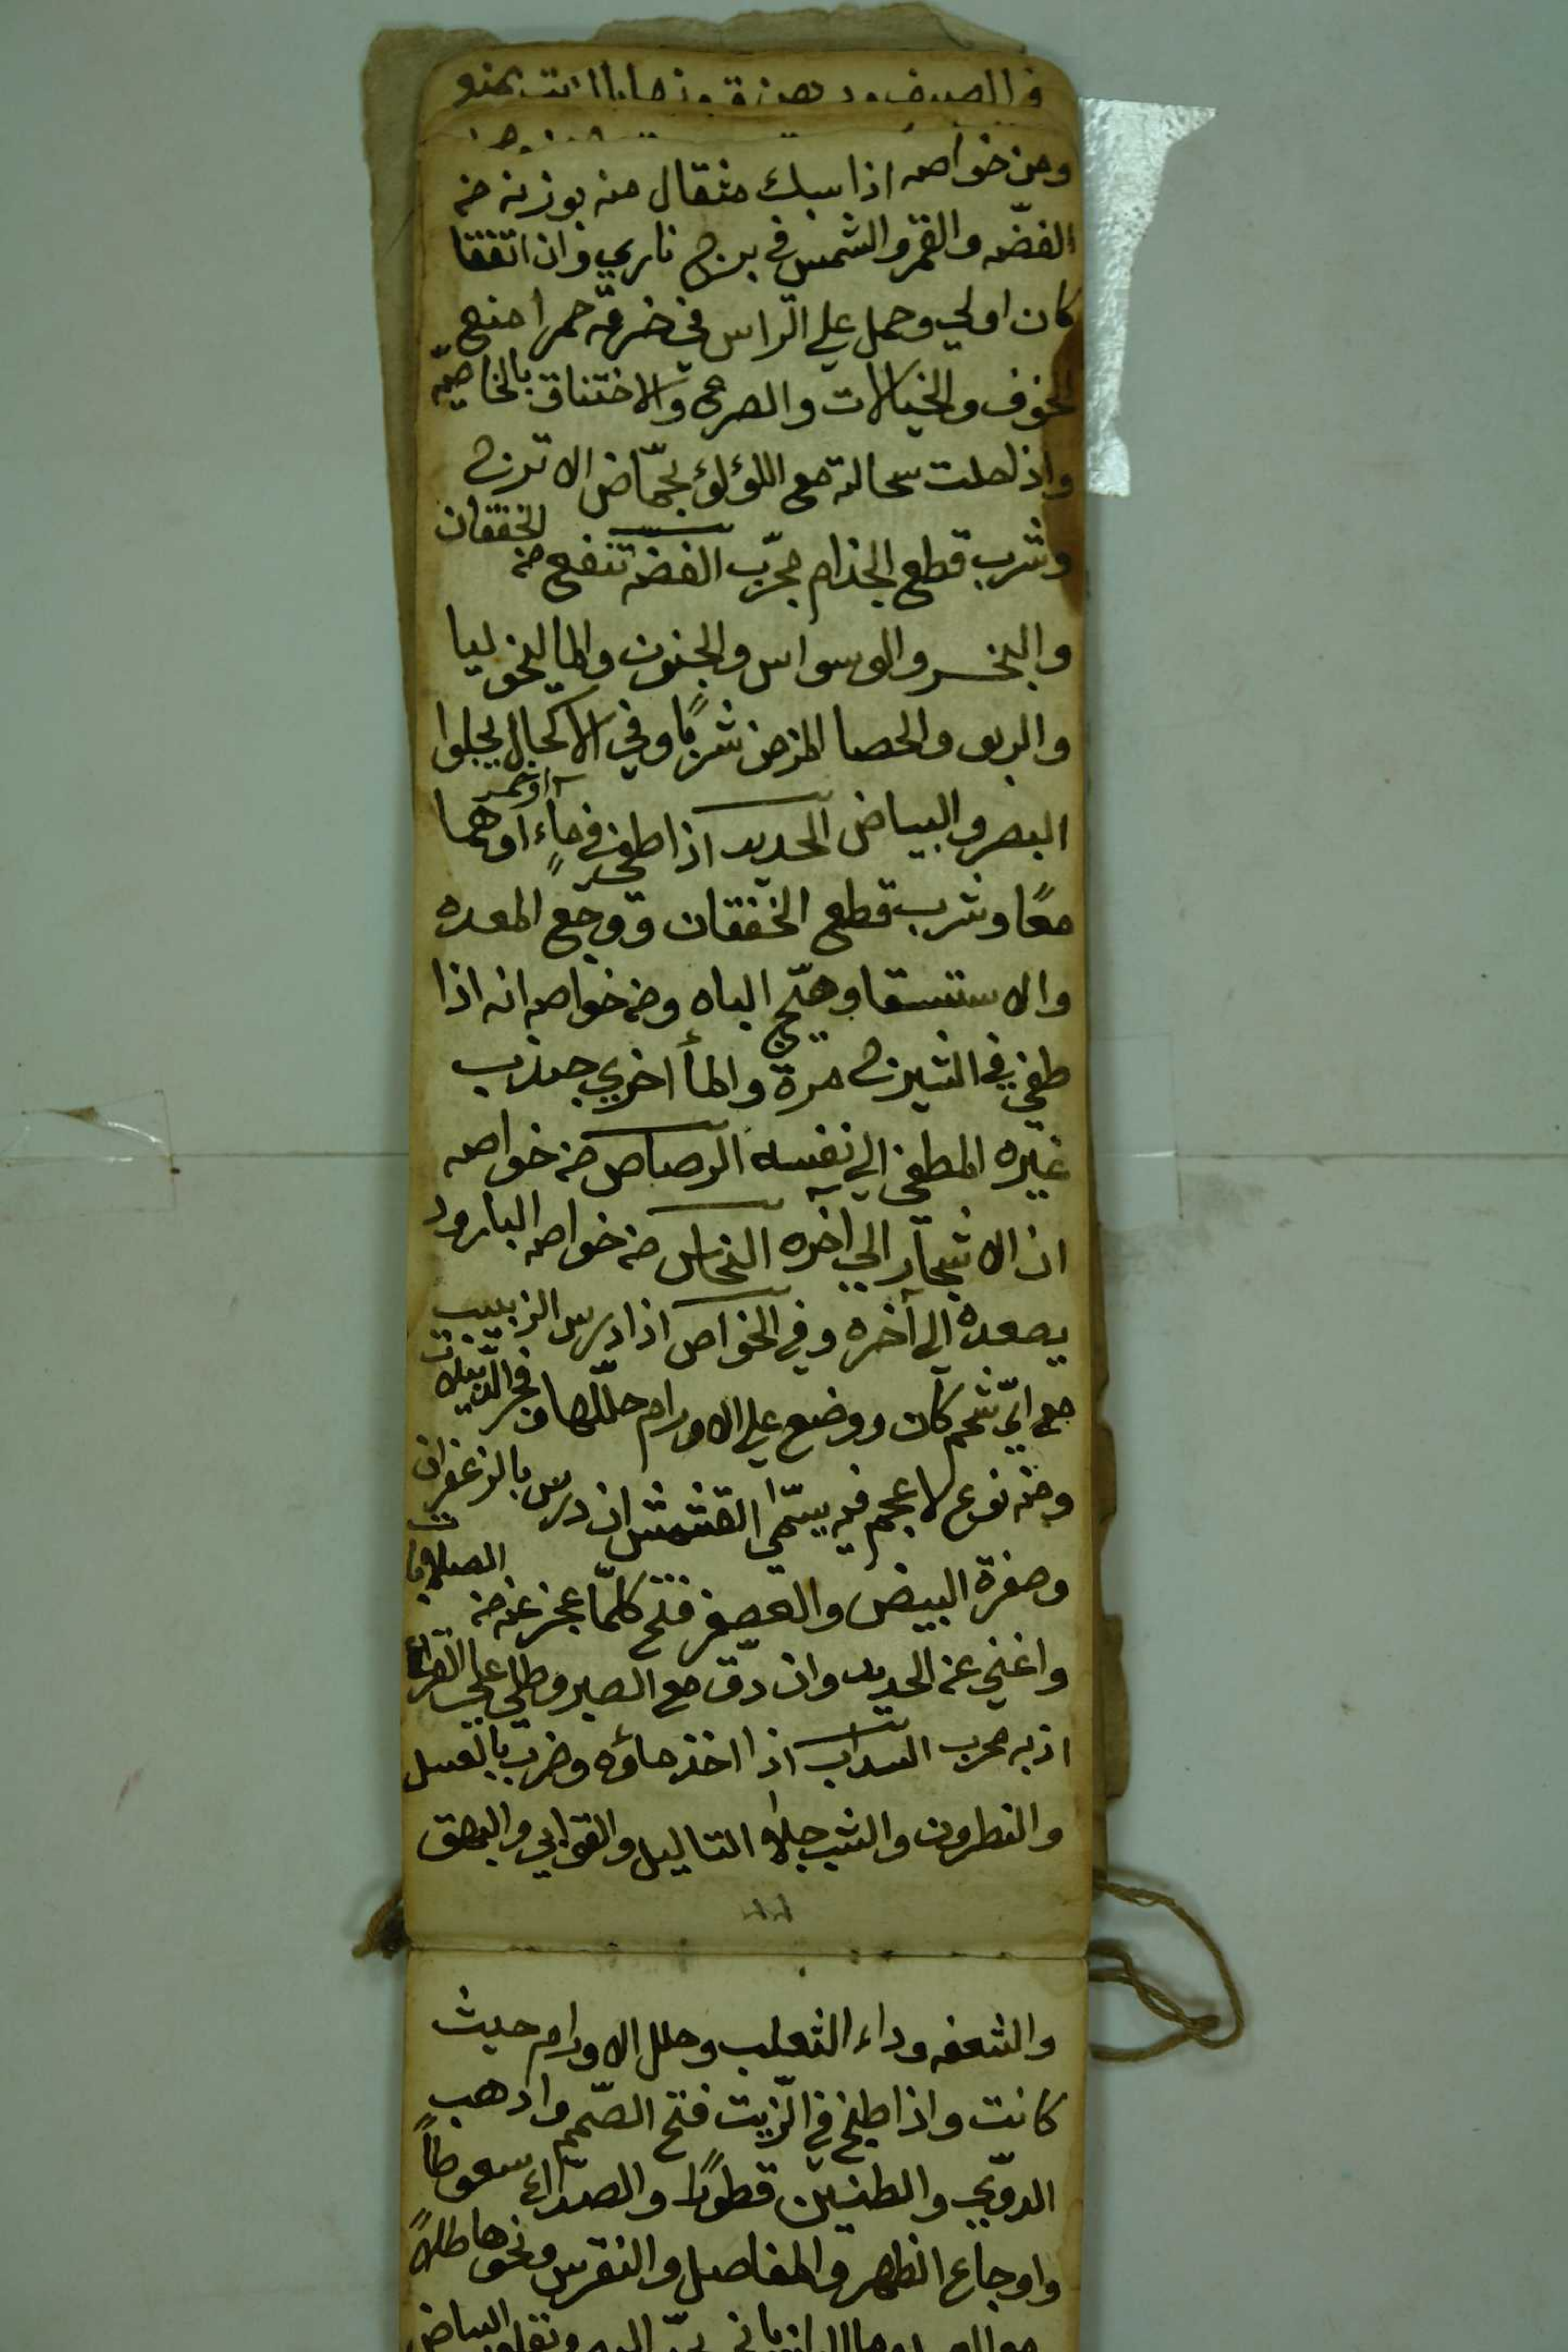 ومن خواصه اذا سبك مثقال منه بوزنه من
الفضّه والقمر والشمس في برج ناري وان اتفقا
كان اولي وحمل علي الراس في خرقه حمرا منع
الخوف والخيالات والصرع والاختناق بالخاصيّه
واذا حلت سحالته مع اللؤلؤ بحمّاض الاترج
وشرب قطع الجذام مجرّب الفضه تنفع من الخفقان
والبخر والوسواس والجنون والماليخوليا
والربو والحصا المزمن شربًا وفي الاكحال يجلوا
البصر والبياض الحديد اذا طفي في ماءٍ او خمر اوهما
معًا وشرب قطع الخفقان ووجع المعده
والاستسقا وهيّج الباه ومن خواصه انه اذا
طفي في الشيرج مرة والمأ اخري جذب
غيره المطفي الي نفسه الرصاص من خواصه
ان الاشجار الي اخره النحاس من خواصه البارود
يصعده الي آخره وفي الخواص اذا درس الزبيب
مع ايّ شحم كان ووضع علي الاورام حلّلها وفجر الدبيلات
ومنه نوع لا عجم فيه يسمّي القشمش ان درس بالزعفران
وصفرة البيض والعصفر فتح كلّما عجز عنه من الصلابات
واغني عن الحديد وان دقّ مع الصبر وطلي علي القراع
اذبه مجرب السداب اذا اخذ ماؤه وضرب بالعسل
والنطرون والشب جلا التاليل والقوابي والبهق
والشعفه وداء الثعلب وحلل الاورام حيث
كانت واذا طبخ في الزّيت فتح الصّمم واذهب
الدويّ والطنين قطورًا والصداع سعوطاً
واوجاع الظهر والمفاصل والنقرس ونحوها طلاً